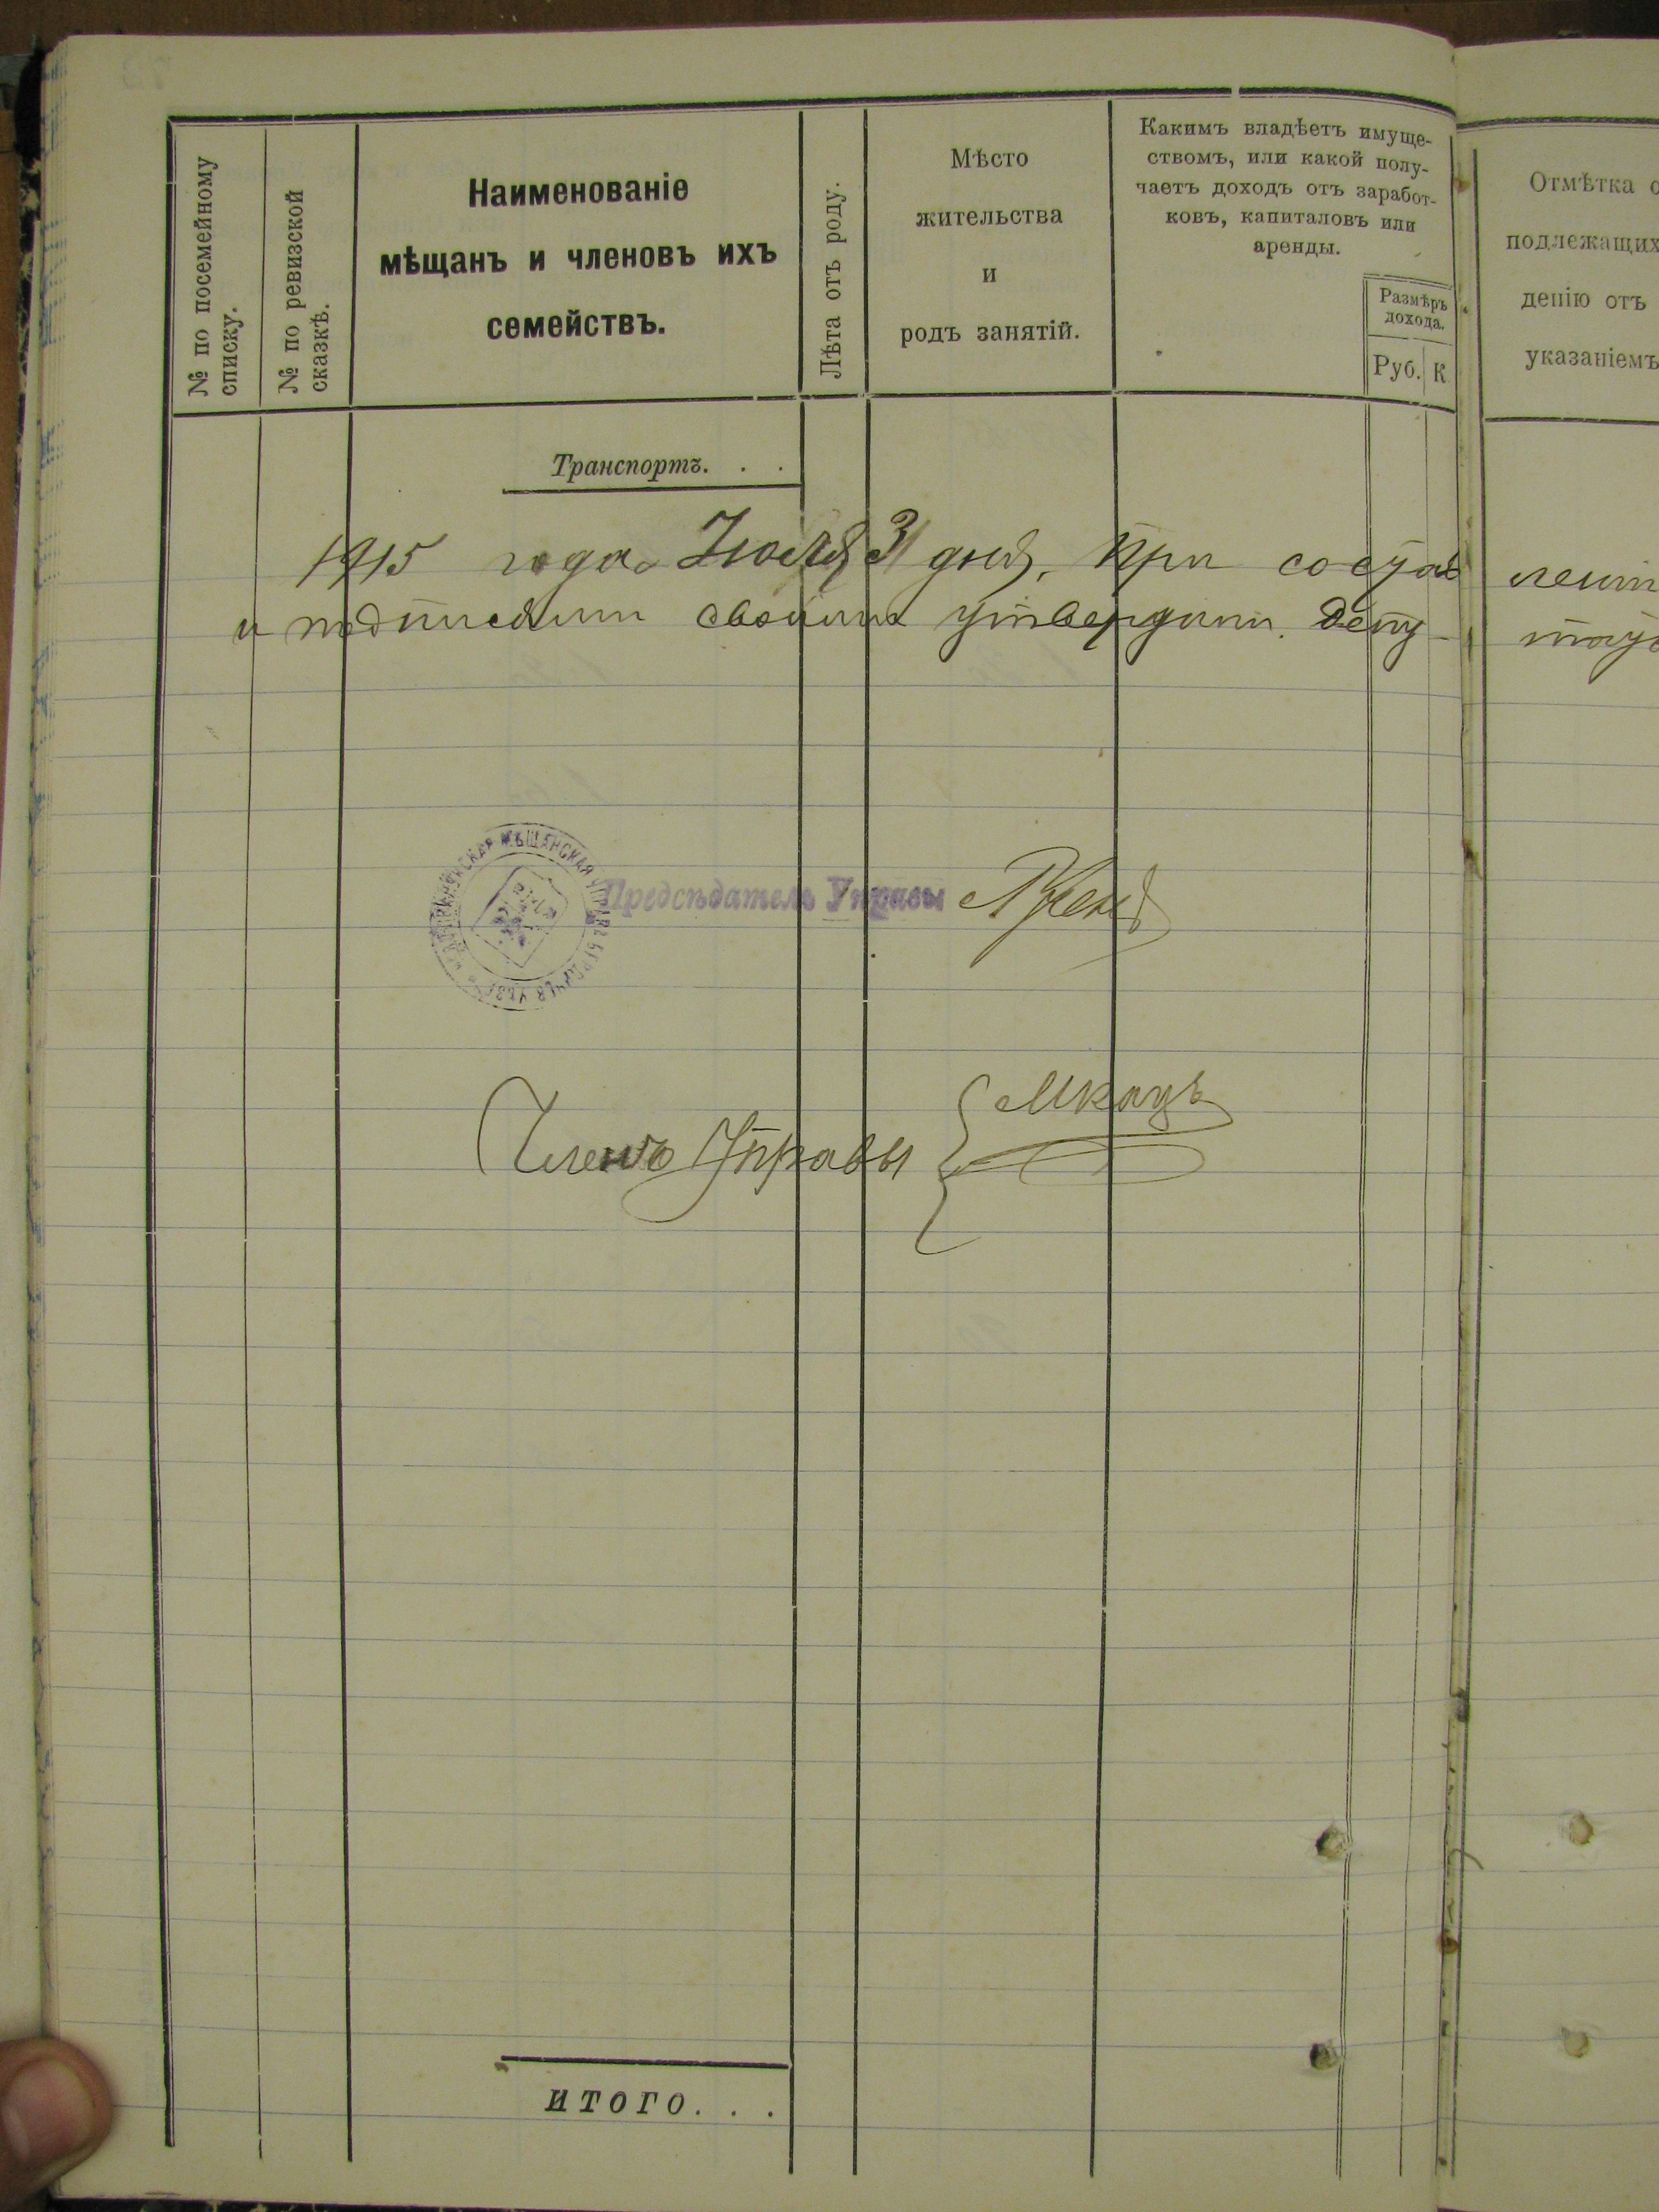 № по посемейному
списку.
№ по ревизской
сказкѣ.
Наименованіе
мѣщанъ и членовъ ихъ
семействъ.
Лѣта отъ роду.
Мѣсто
жительства
и
родъ занятій.
Какимъ владѣетъ имуще-
ствомъ, или какой полу-
чаетъ доходъ отъ заработ-
ковъ, капиталовъ или
аренды.
Размѣръ
дохода.
Руб. К
Отмѣтка о
подлежащих
денію отъ
указаніемъ
Транспортъ. . .
1915 года Іюля 31 дня, при состав
и подписями своими утвердили. Депу-
МѢЩАНСКАЯ УПРАВА БЕРДИЧЕВ УѢЗ
Предсѣдатель Управы
Члены Управы { МКацъ
ИТОГО. . .